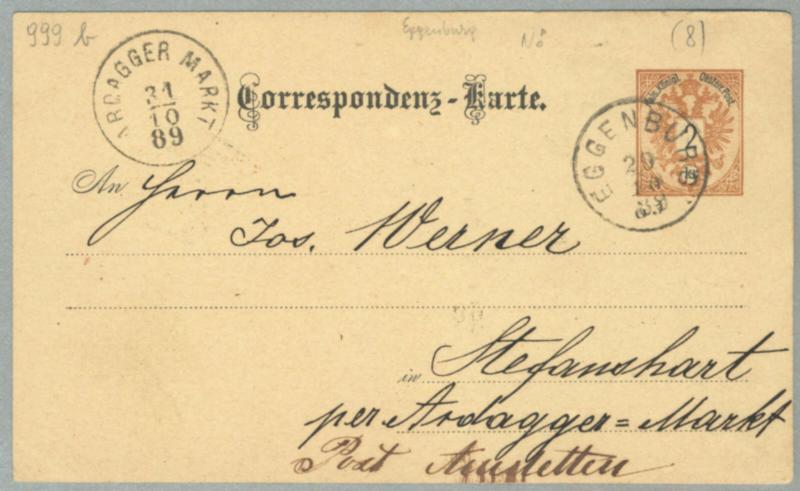 999 b
Eggenburg
NÖ
(8)
ARDAGGER MARKT
31
10
89
Correspondenz-Karte.
2
EGGENBURG
An Herrn
Jos. Werner
in Stefanshart
per Ardagger=Markt
Post Amstetten